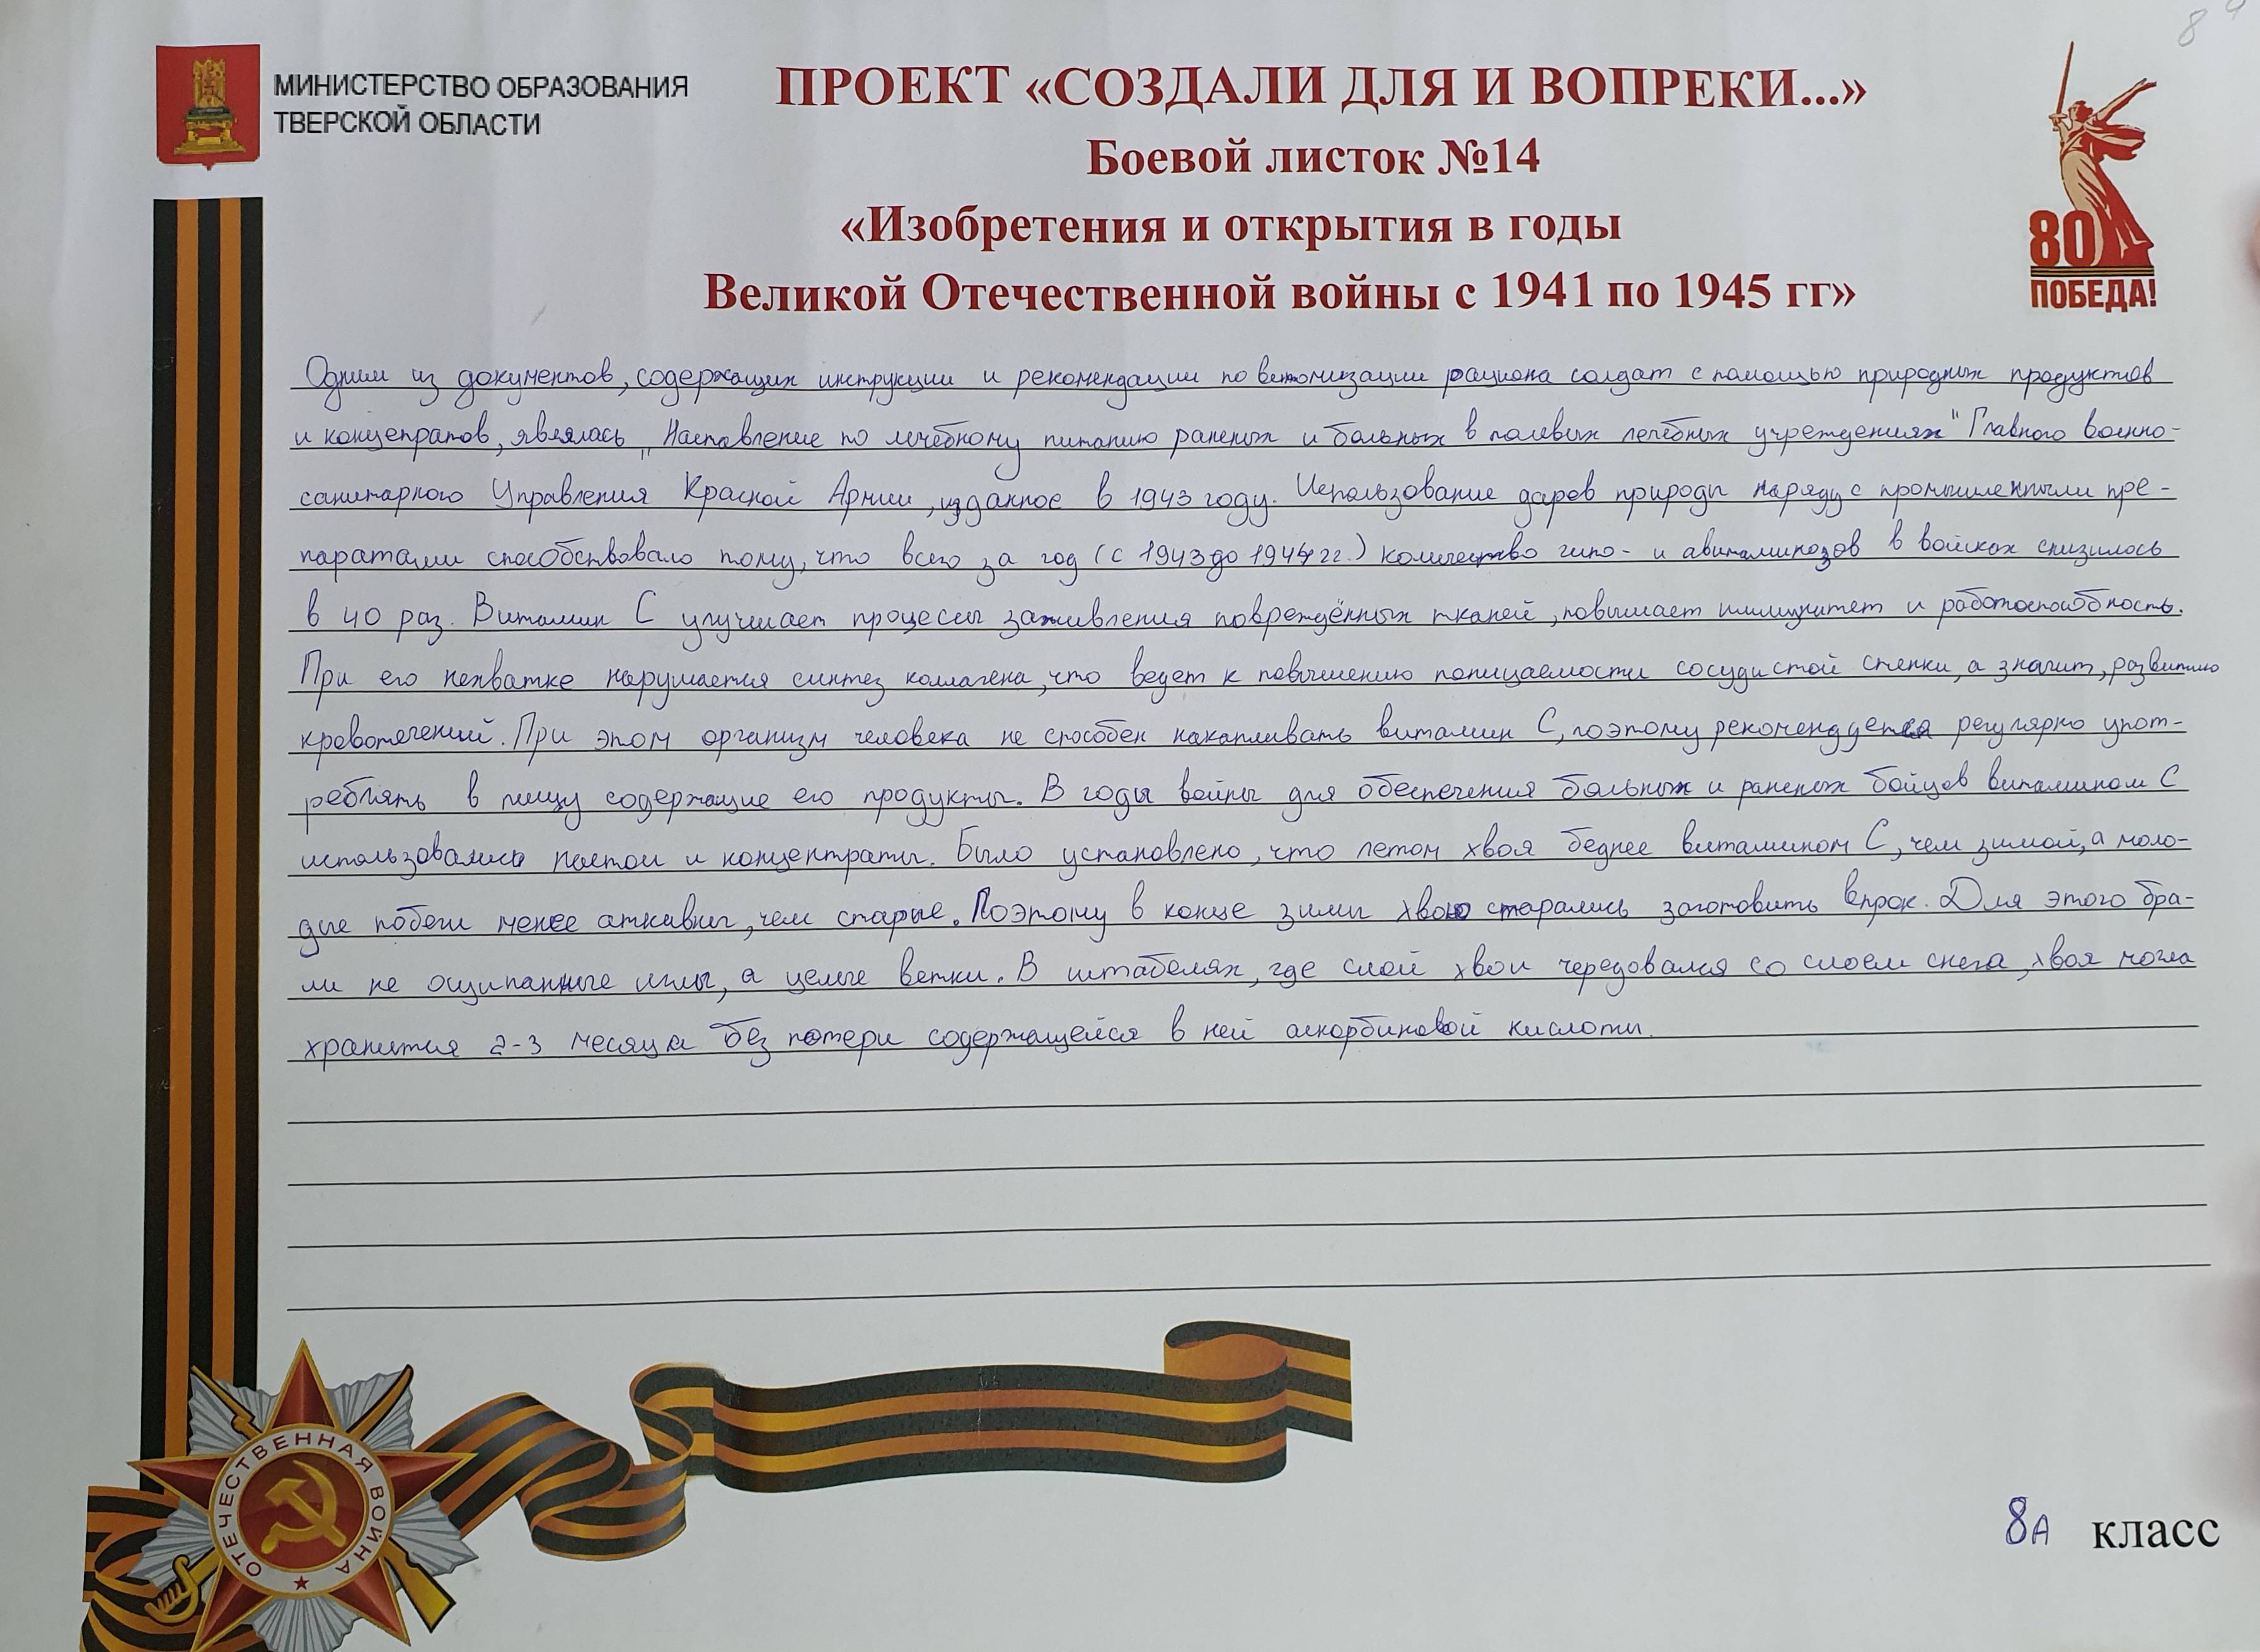 8 А
МИНИСТЕРСТВО ОБРАЗОВАНИЯ
ТВЕРСКОЙ ОБЛАСТИ
ПРОЕКТ «СОЗДАЛИ ДЛЯ И ВОПРЕКИ...»
Боевой листок №14
«Изобретения и открытия в годы
Великой Отечественной войны с 1941 по 1945 гг»
80
ПОБЕДА!
Одним из документов, содержащих инструкции и рекомендации по витомизации рациона солдат с помощью природных продуктов
и концептратов, являлась „Наставление по лечебному питанию раненых и больных в полевых лечебных учреждениях" Главного военно-
санитарного Управления Красной Армии, изданное в 1943 году. Использование даров природы наряду с промышленными пре-
паратами способствовало тому, что всего за год (с 1943 до 1944 гг.) количество гипо- и авитаминозов в войсках снизилось
в 40 раз. Витамин С улучшает процессы заживления повреждённых тканей, повышает иммунитет и работоспособность.
При его нехватке нарушается синтез коллагена, что ведет к повышению поницаемости сосудистой стенки, а значит, развитию
кровотечений. При этом организм человека не способен накапливать витамин С, поэтому рекомендуется регулярно упот-
реблять в пищу содержащие его продукты. В годы войны для обеспечения больных и раненых бойцов витамином С
использовались настои и концентраты. Было установлено, что летом хвоя беднее витамином С, чем зимой, а моло-
дые побеги менее активны, чем старые. Поэтому в конце зимы хвою старались заготовить впрок. Для этого бра-
ли не ощипанные иглы, а целые ветки. В штабелях, где слой хвои чередовался со слоем снега, хвоя могла
хранится 2-3 месяца без потери содержащейся в ней аскорбиновой кислоты.
ОТЕЧЕСТВЕННАЯ ВОЙНА
8А класс